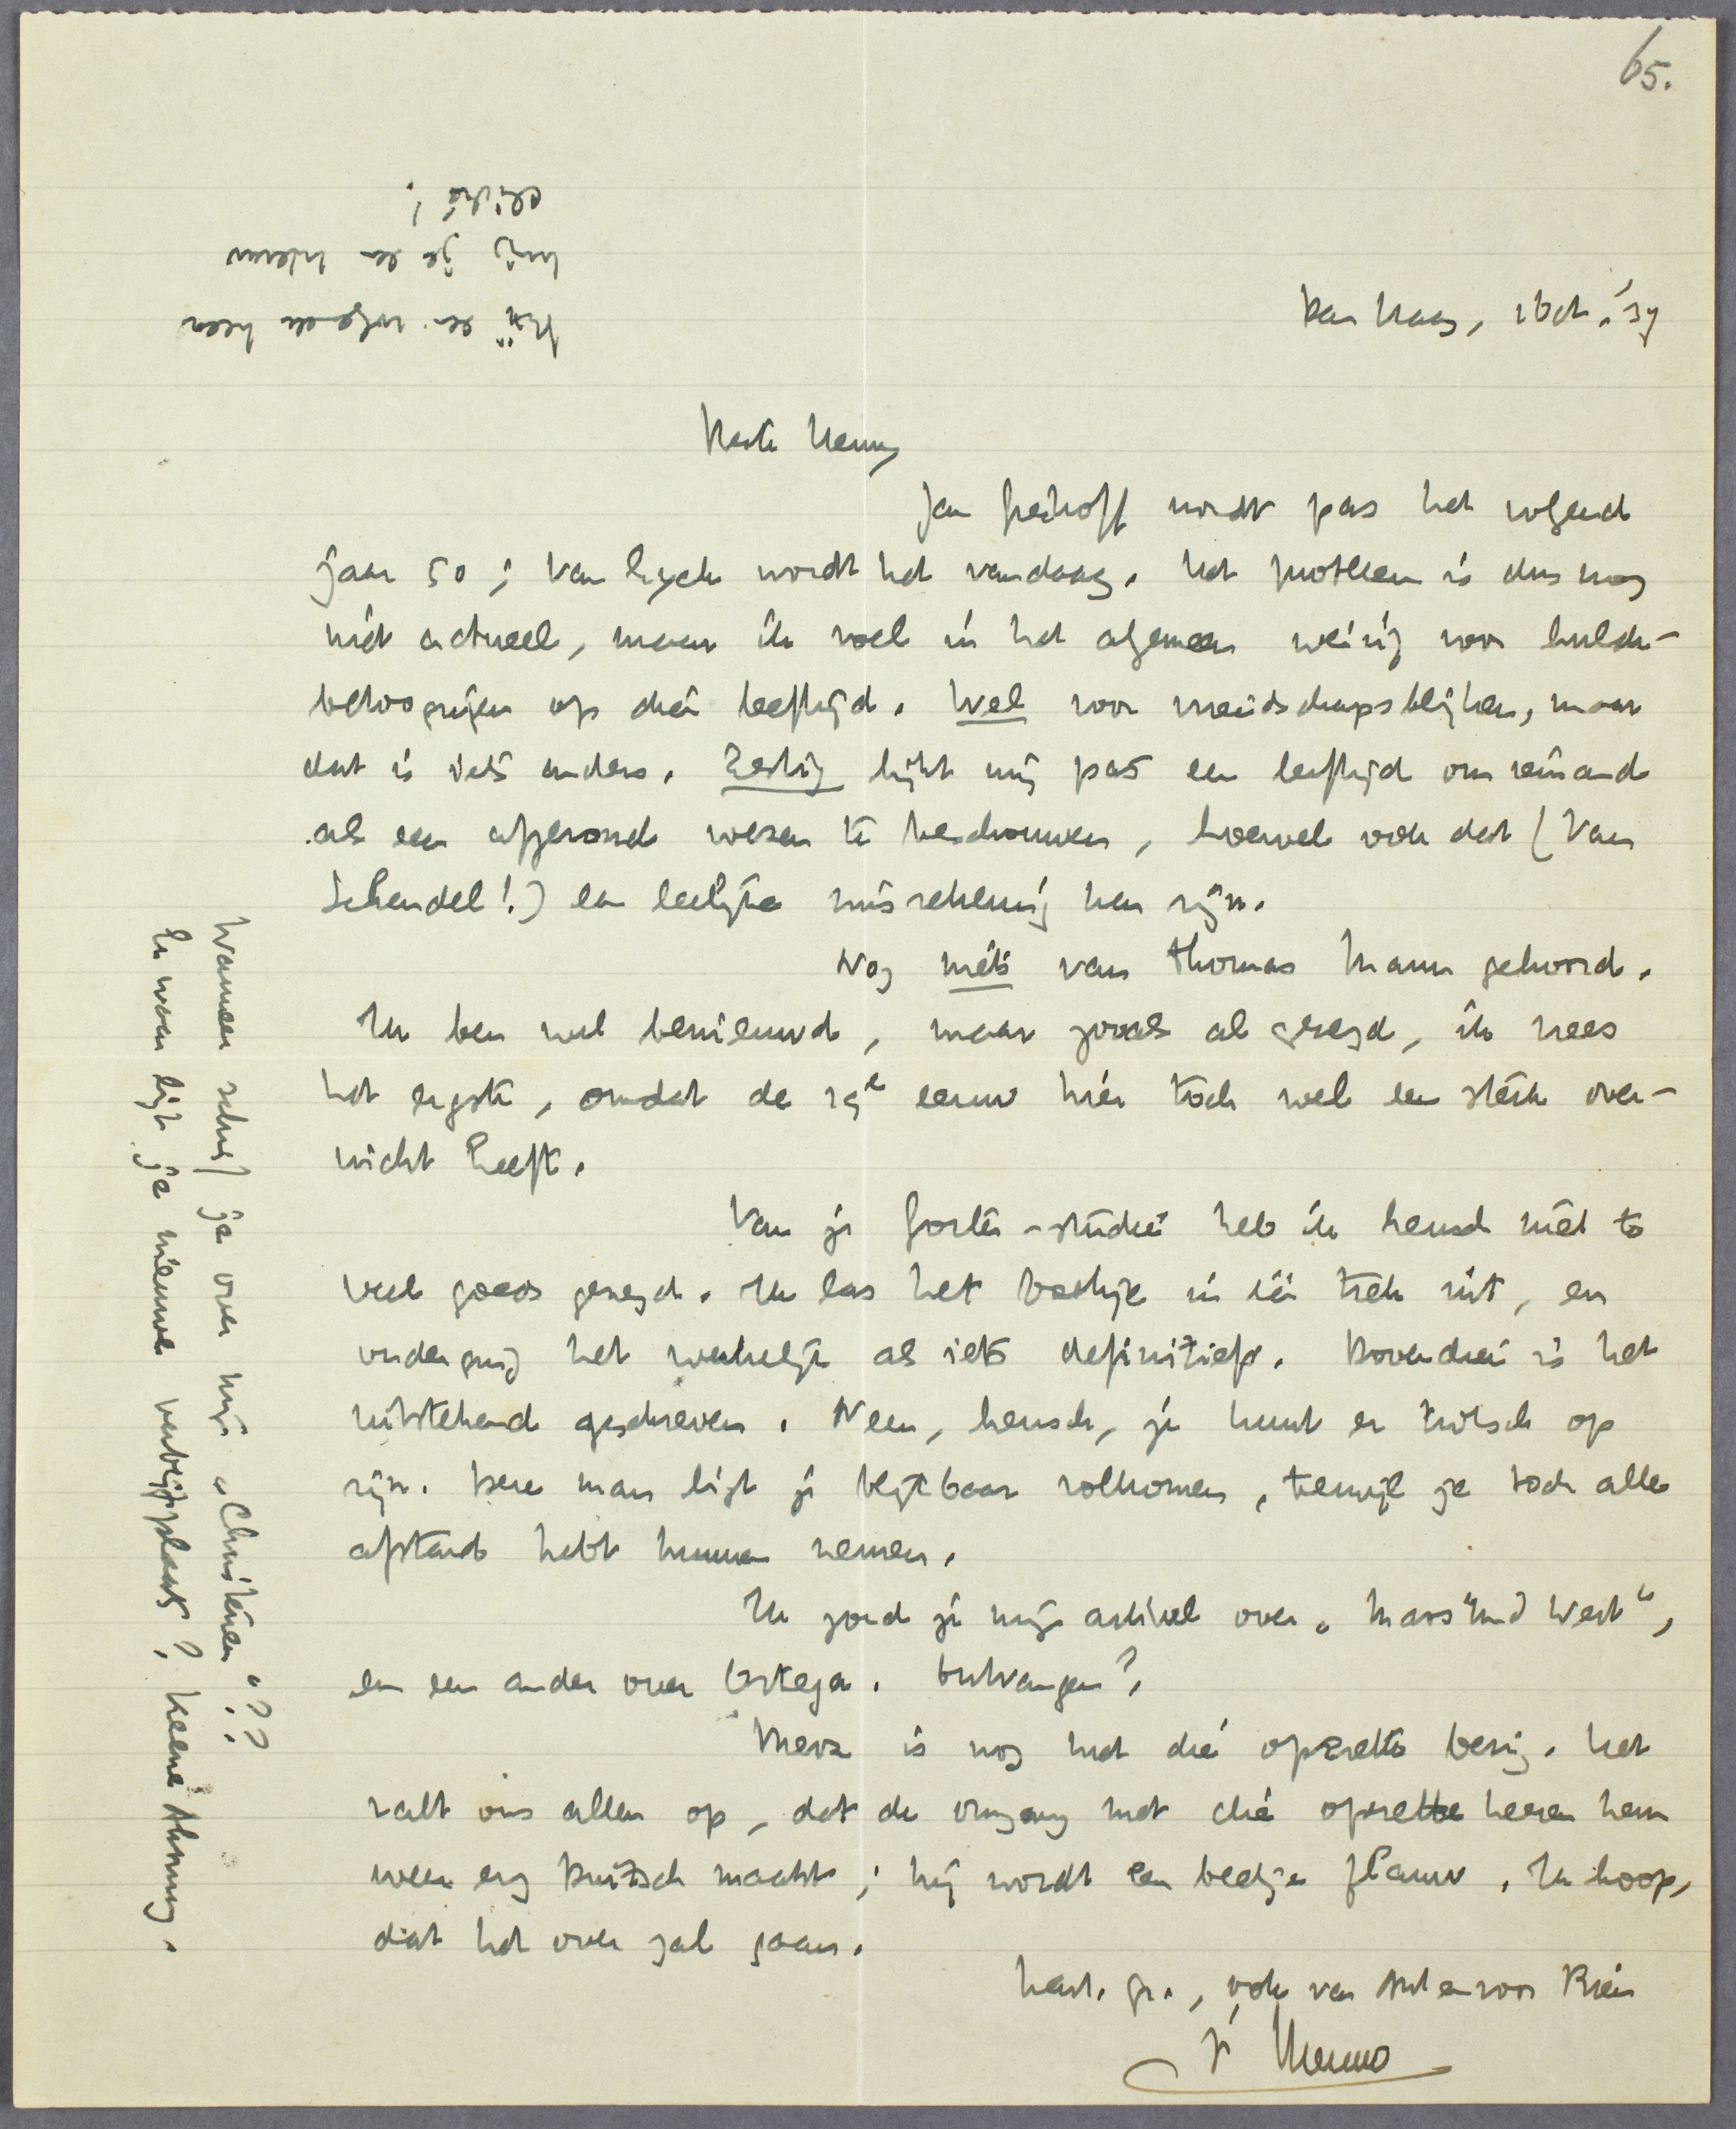 65.
Den Haag, 1 Oct. '37
Beste Henny
Jan Greshoff wordt pas het volgend
jaar 50; Van Eyck wordt het vandaag. Het probleem is dus nog
niet actueel, maar ik voel in het algemeen weinig voor hulde-
betoogingen op dien leeftijd. Wel voor vriendschapsblijken, maar
dat is iets anders. Zestig lijkt mij pas een leeftijd om iemand
als een afgerond wezen te beschouwen, hoewel ook dat (Van
Schendel!) een leelijke misrekening kan zijn.
Nog niets van Thomas Mann gehoord.
Ik ben wel benieuwd, maar zooals al gezegd, ik vrees
het ergste, omdat de 19e eeuw hier toch wel een sterk over-
wicht heeft.
Van je Gorter-studie heb ik heusch niet te
veel goeds gezegd. Ik las het boekje in één trek uit, en
onderging het werkelijk als iets definitiefs. Bovendien is het
uitstekend geschreven. Neen, heusch, je kunt er trotsch op
zijn. Deze man ligt je blijkbaar volkomen, terwijl je toch alle
afstand hebt kunnen nemen.
Ik zond je mijn artikel over „Mass und Wert",
en een ander over Ortega. Ontvangen?
is nog met die operette bezig. Het
valt ons allen op, dat de omgang met die operette heeren hem
weer erg Duitsch maakt; hij wordt een beetje flauw. Ik hoop,
dat het over zal gaan.
Hart. gr., ook van Ant en voor Rien
je Menno
Wanneer schreef je over mijn „Christenen"??
En waar ligt je nieuwe verblijfplaats? Keene Ahnung.
Bij een volgende keer
krijg je een nieuw
cliché!